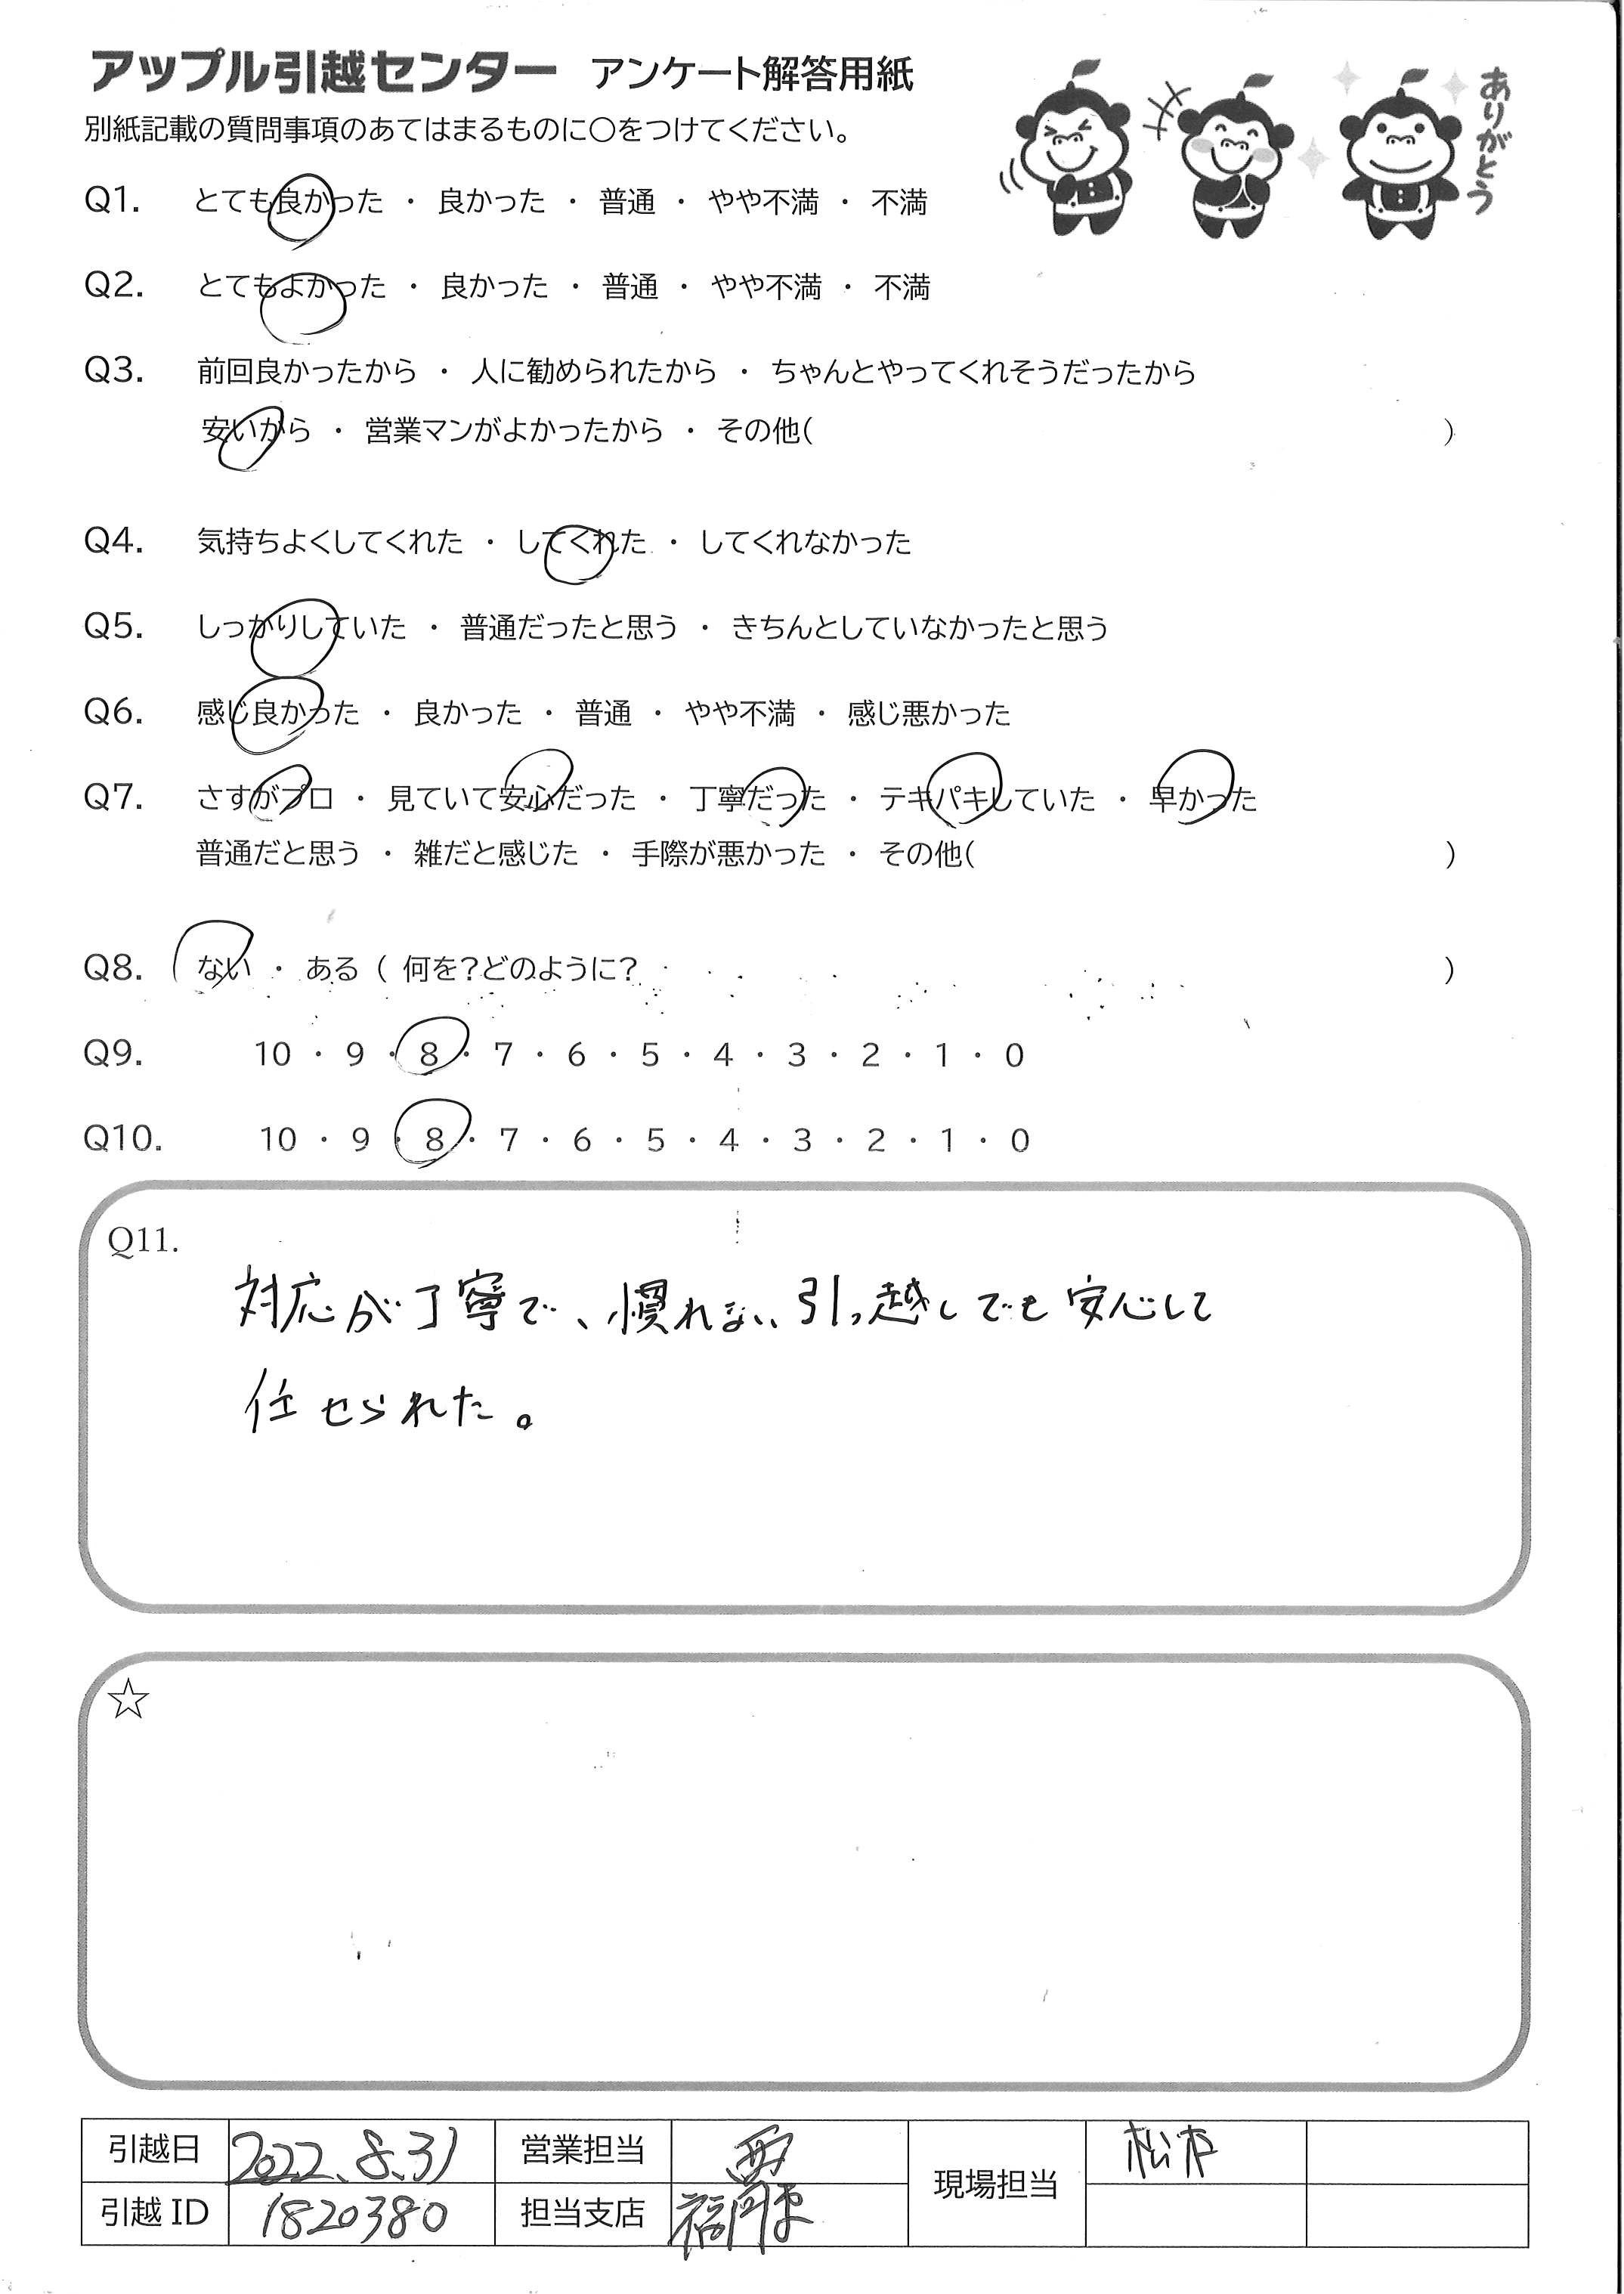 アップル引越センター アンケート解答用紙
ありがとう
別紙記載の質問事項のあてはまるものに○をつけてください。
Q1. とても良かった ・ 良かった ・ 普通 ・ やや不満 ・ 不満
Q2. とてもよかった ・ 良かった ・ 普通 ・ やや不満 ・ 不満
Q3. 前回良かったから ・ 人に勧められたから ・ ちゃんとやってくれそうだったから
安いから ・ 営業マンがよかったから ・ その他( )
Q4. 気持ちよくしてくれた ・ してくれた ・ してくれなかった
Q5. しっかりしていた ・ 普通だったと思う ・ きちんとしていなかったと思う
Q6. 感じ良かった ・ 良かった ・ 普通 ・ やや不満 ・ 感じ悪かった
Q7. さすがプロ ・ 見ていて安心だった ・ 丁寧だった ・ テキパキしていた ・ 早かった
普通だと思う ・ 雑だと感じた ・ 手際が悪かった ・ その他( )
Q8. ない ・ ある ( 何を?どのように? )
Q9. 10 ・ 9 ・ 8 ・ 7 ・ 6 ・ 5 ・ 4 ・ 3 ・ 2 ・ 1 ・ 0
Q10. 10 ・ 9 ・ 8 ・ 7 ・ 6 ・ 5 ・ 4 ・ 3 ・ 2 ・ 1 ・ 0
Q11.
対応が丁寧で、慣れない引っ越しでも安心して
任せられた。
☆
引越日 2022.8.31 営業担当 西 現場担当 松本
引越 ID 1820380 担当支店 福岡